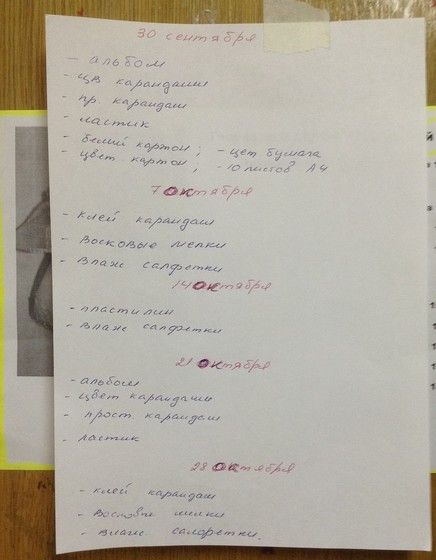 30 сентября
- альбом
- цв карандаши
- пр. карандаш
- ластик
- белый картон; - цет бумага
- цвет картон; - 10 листов А4
7 октября
- клей карандаш
- Восковые мелки
- Влаж салфетки
14 октября
- пластилин
- Влаж салфетки
21 октября
- альбом
- цвет карандаши
- прост. карандаш
- ластик
28 октября
- клей карандаш
- Восковые мелки
- Влаж салфетки.